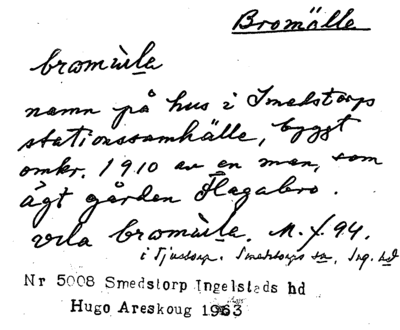 Bromölle
bromùle
namn på hus i Smedstorps
stationssamhälle, byggt
omkr. 1910 av en man, som
ägt gården Hagabro.
vela bromùle. M. f. 94.
i Tjustorp. Smedstorps sn, Ing. hd
Nr 5008 Smedstorp Ingelstads hd
Hugo Areskoug 1963